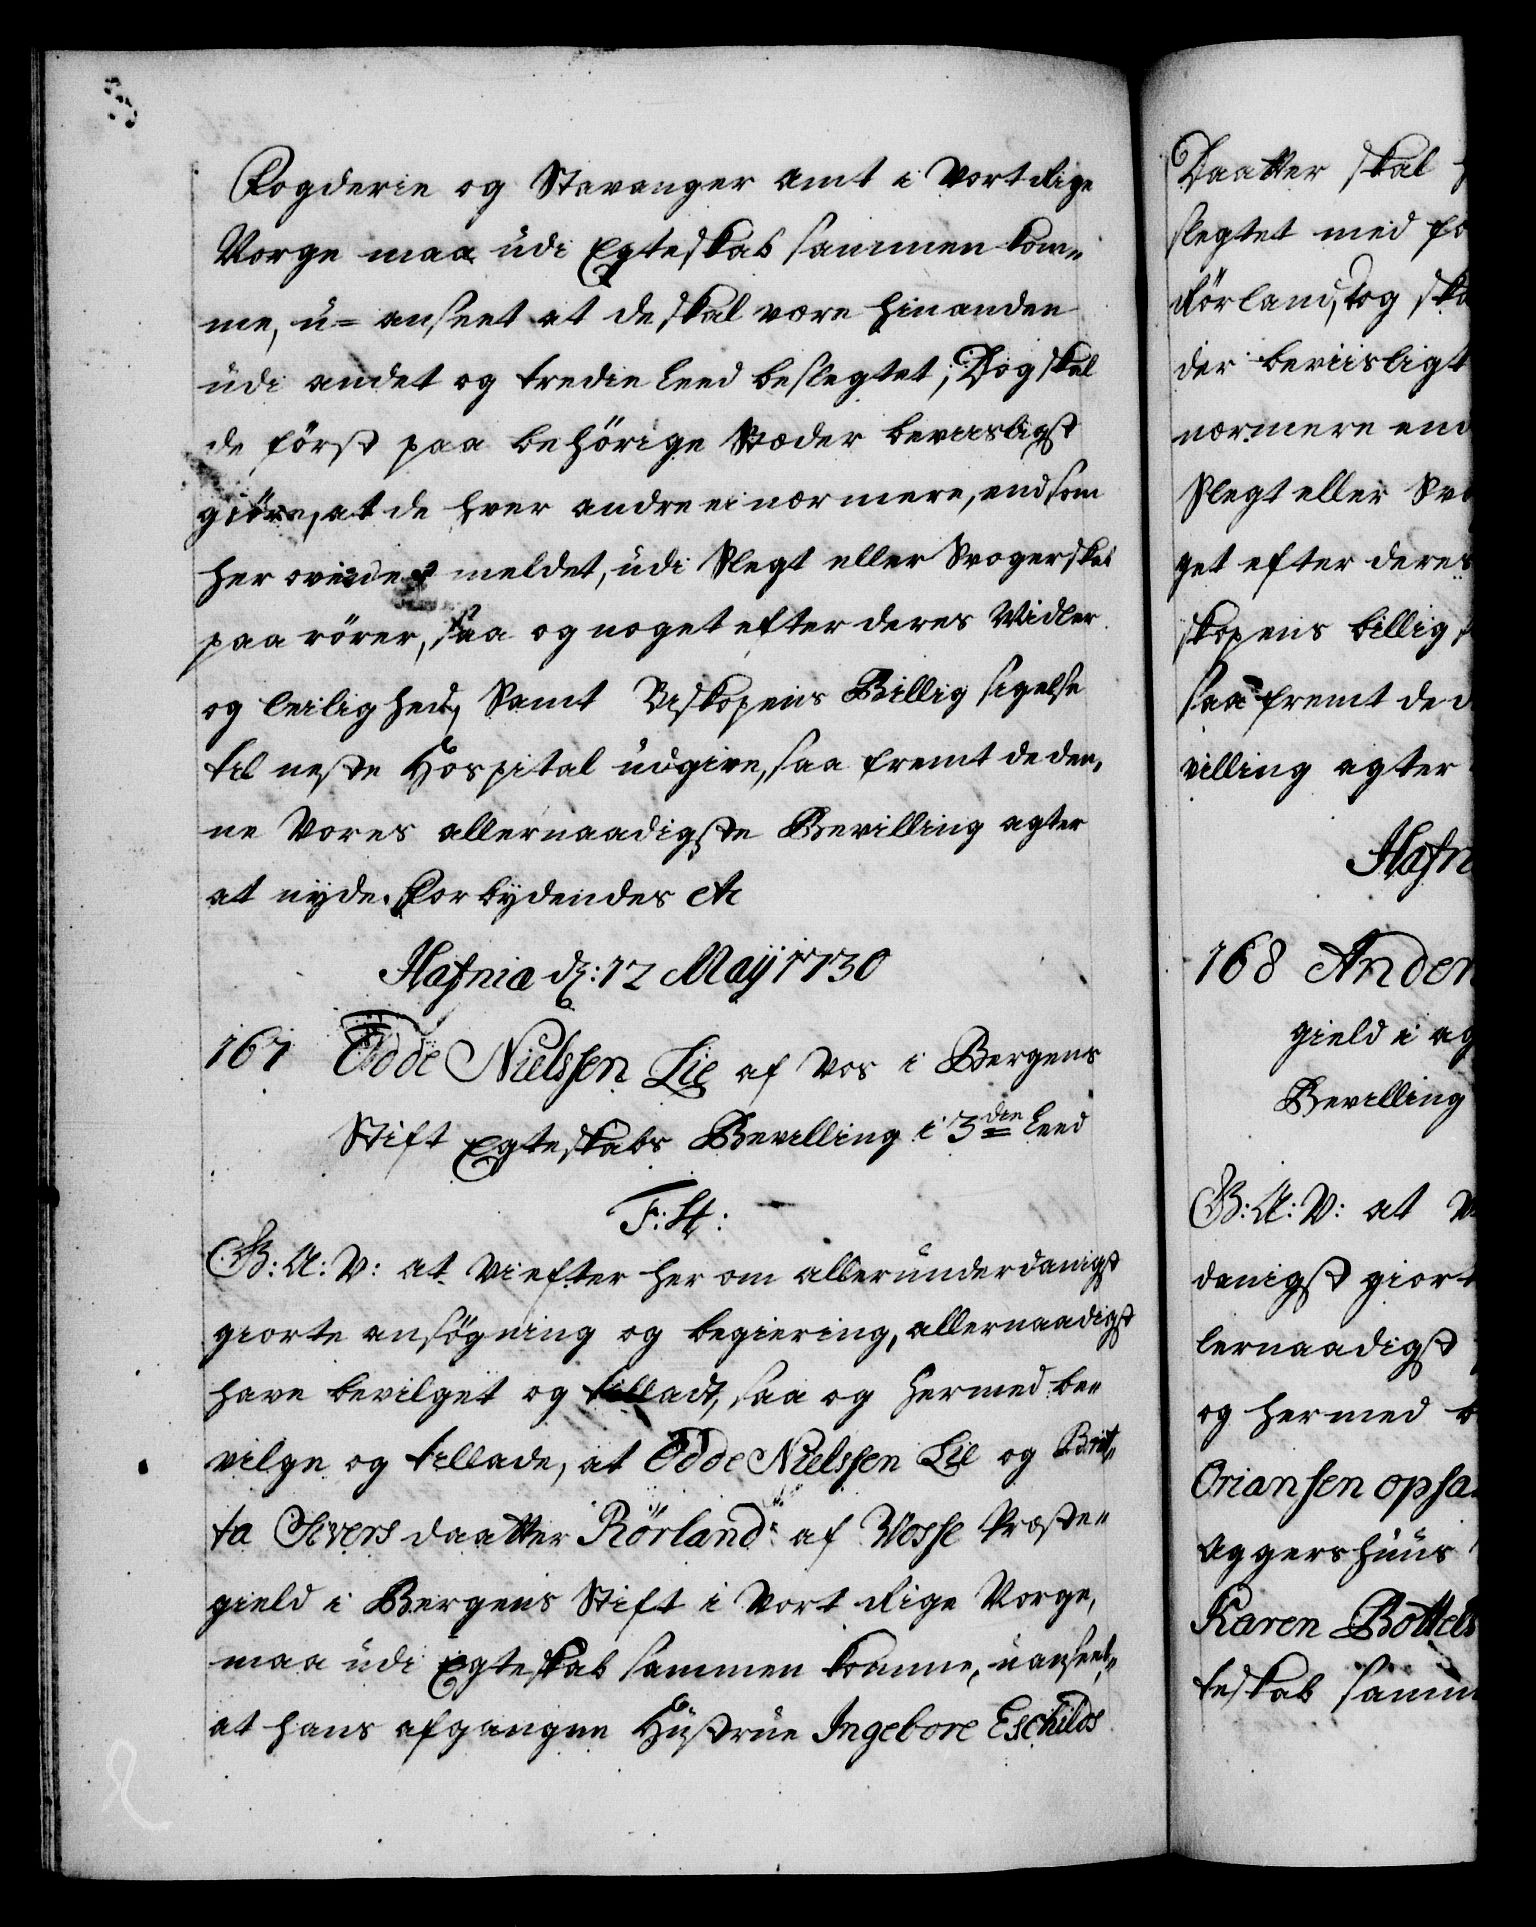 Fogderie og Stavanger Amt i Vort Rige
Norge maa udi Egteskab sammen kom-
me, u-anseet at de skal være hinanden
udi andet og tredie Leed beslegtet; Dog skal
de først paa behørige Stæder beviisligst
giøre, at de hver andre ei nærmere, end som
her oven meldet, udi Slegt eller Svogerskab
paa rører, saa og noget efter deres Midler
og leilighed, Samt Biskopens Billig sigelse
til neste Hospital udgive, saa fremt de den-
ne Vores allernaadigste Bevilling agter
at nyde. Forbydendes etc
Hafniæ dg: 12 Maij 1730
167 Odde Nielssen Lie af Vos i Bergens
Stift Egteskabs Bevilling i 3die Leed
F: 4:
G: A: V: at Vi efter her om allerunderdanigst
giorte ansøgning og begiering, allernaadigst
have bevilget og tilladt, saa og hermed be-
vilge og tillade, at Odde Nielssen Lie og Brit-
ta Sivers daatter Rørland af Vosse Præste-
gield i Bergens Stift i Vort Rige Norge,
maa udi Egteskab sammen komme, uanseet,
at hans afgangne Hustrue Ingebore Eschilds
Daatter skal
slegtet med
Rørland, dog
der beviisligt
nærmere end
Slegt eller
get efter deres
skopens billig
saa fremt de
villing agter
168
gield i
Bevilling
G: A: V: at
danigst giort
lernaadigst
og hermed
Oriansen
Aggershuus
Karen
teskab